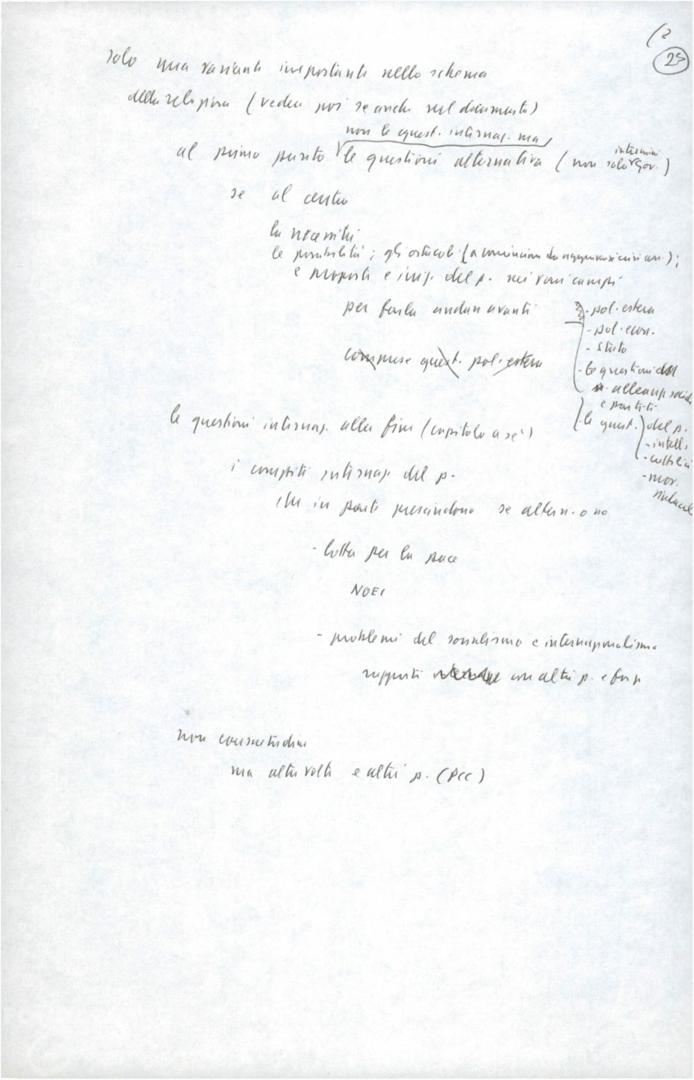 (2
25
solo una variante importante nello schema
della relazione (vedere poi se anche sul documento)
non le quest. internaz. ma
al primo punto le questioni alternativa (non solo in termini gov.)
se al centro
la necessità
le possibilità; gli ostacoli (a cominciare da);
e proposte e iniz. del p. nei vari campi
per farla andare avanti
- pol. estera
- pol. econ.
- Stato
- le questioni
alleanze sociali
e partiti
- le quest. del p.
- intell.
- cattolici
- mov.
sindacale
comprese quest. pol. estera
le questioni internaz. alla fine (capitolo a sé)
i compiti internaz. del p.
che in parte prescindono se altern. o no
- lotta per la pace
NOEI
- problemi del socialismo e internazionalismo
rapporti con altri p. e forze
non consuetudine
ma altre volte e altri p. (PCC)